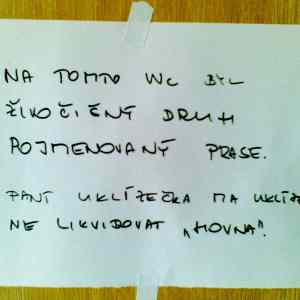 NA TOMTO WC BYL
ŽIVOČIŠNÝ DRUH
POJMENOVANÝ PRASE.
PANÍ UKLÍZEČKA MÁ UKLÍZE
NE LIKVIDOVAT „HOVNA".